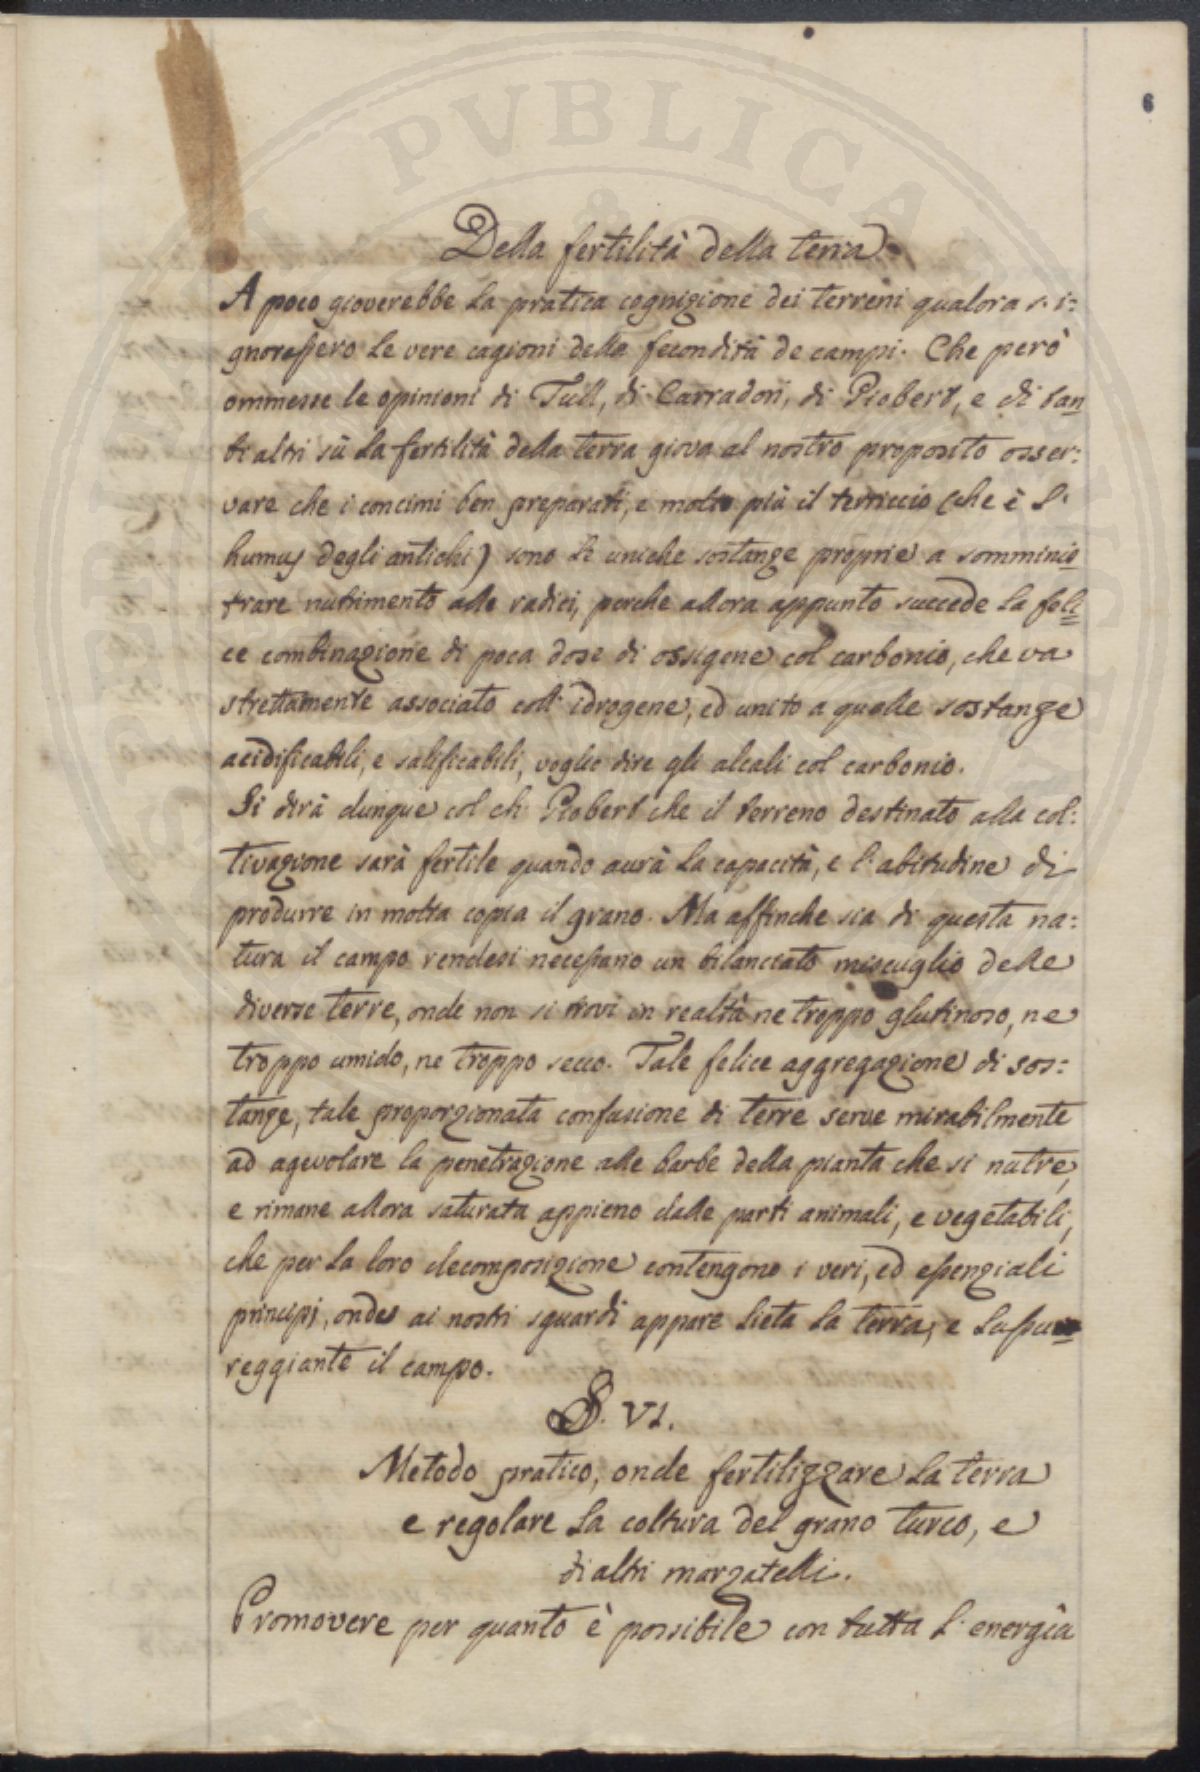 6
Della fertilità della terra
A poco gioverebbe la pratica cognizione dei terreni qualora s'i=
gnorassero le vere cagioni della fecondità de campi. Che però
ommesse le opinioni di Tull, di Carradori, di Piobert, e di tan
ti altri sù la fertilità della terra giova al nostro proposito osser=
vare che i concimi ben preparati, e molto più il terriccio (che è l'
humus degli antichi) sono le uniche sostanze proprie a somminis
trare nutrimento alle radici, perche allora appunto succede la feli
ce combinazione di poca dose di ossigene col carbonio, che va
strettamente associato coll' idrogene, ed unito a quelle sostanze
acidificabili, e salificabili, voglio dire gli alcali col carbonio.
Si dirà dunque col ch. Piobert che il terreno destinato alla col=
tivazione sarà fertile quando aurà la capacità, e l'abitudine di
produrre in molta copia il grano. Ma affinche sia di questa na=
tura il campo rendesi necessario un bilanciato miscuglio delle
diverse terre, onde non si trovi in realtà ne troppo glutinoso, ne
troppo umido, ne troppo secco. Tale felice aggregazione di sos=
tanze, tale proporzionata confusione di terre serve mirabilmente
ad agevolare la penetrazione alle barbe della pianta che si nutre,
e rimane allora saturata appieno dalle parti animali, e vegetabili,
che per la loro decomposizione contengono i veri, ed essenziali
principj, onde ai nostri sguardi appare lieta la terra, e lussu
reggiante il campo.
§. VI.
Metodo pratico, onde fertilizzare la terra
e regolare la coltura del grano turco, e
di altri marzatelli.
Promovere per quanto è possibile con tutta l'energia